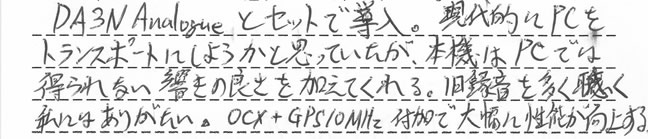 DA3N Analogue とセットで導入。現代的にPCを
トランスポートにしようかと思っていたが、本機はPCでは
得られない響きの良さを加えてくれる。旧録音を多く聴く
私にはありがたい。OCX+GPS10MHz付加で大幅に性能が向上する